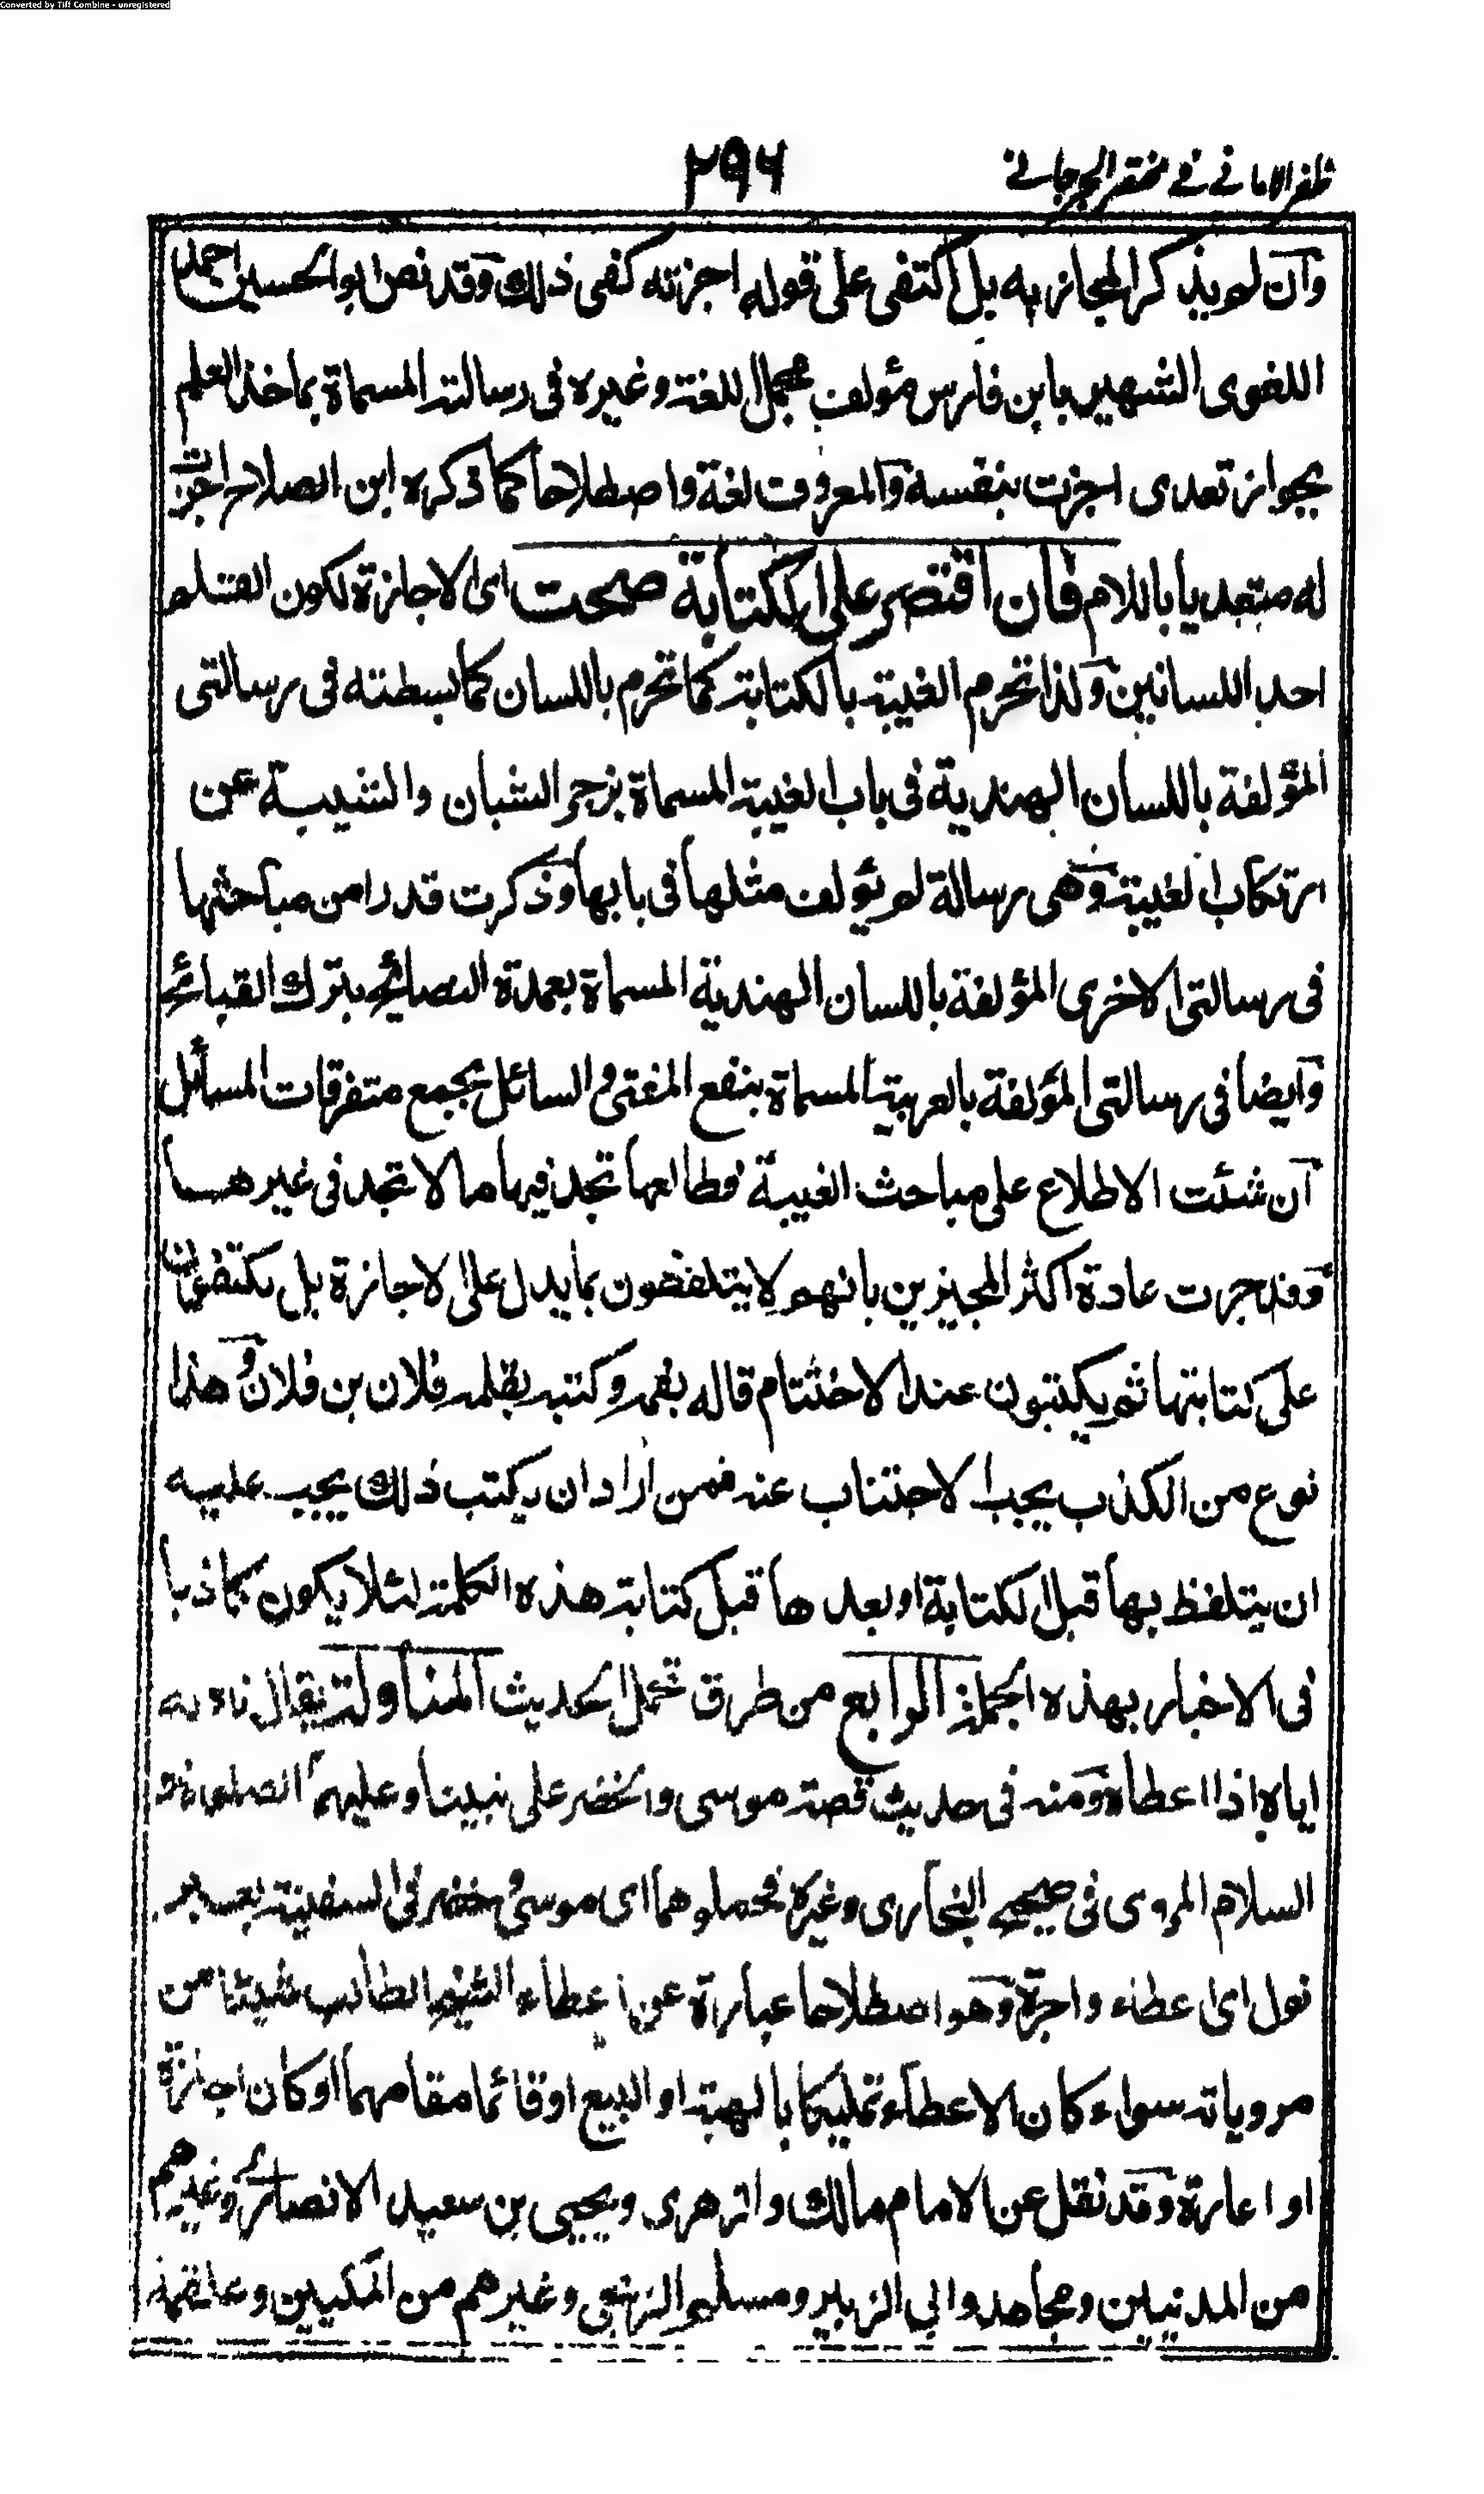 Converted by Tiff Combine - unregistered
ظفر الامانی فی مختصر الجرجانی
۲۹۶
وآن لم يذكر المجاز به بل اكتفى على قوله اجزته كفى ذلك وقد نص ابو الحسين احمد
اللغوى الشهير بابن فارس مؤلف مجمل اللغة وغيره فى رسالته المسماة بماخذ العلم
بجواز تعدى اجزت بنفسه والمعروف لغة واصطلاحا كما ذكره ابن الصلاح اجزت
له متعديا باللام فان اقتصر على الكتابة صحت اى الاجازة لكون القلم
احد اللسانين ولذا تحرم الغيبة بالكتابة كما تحرم باللسان كما بسطته فى رسالتى
المؤلفة باللسان الهندية فى باب الغيبة المسماة بزجر الشبان والشيبة عن
ارتكاب الغيبة وهى رسالة لم يؤلف مثلها فى بابها وذكرت قدرا من مباحثها
فى رسالتى الاخرى المؤلفة باللسان الهندية المسماة بعمدة النصائح بترك القبائح
وآيضا فى رسالتى المؤلفة بالعربية المسماة بنفع المفتى والسائل بجمع متفرقات المسائل
آن شئت الاطلاع على مباحث الغيبة فطالعها تجد فيها ما لا تجد فى غيرها
وقد جرت عادة اكثر المجيزين بانهم لا يتلفظون بما يدل على الاجازة بل يكتفون
على كتابتها ثم يكتبون عند الاختتام قاله بفمه وكتبه بقلمه فلان بن فلان وهذا
نوع من الكذب يجب الاجتناب عنه فمن اراد ان يكتب ذلك يجب عليه
ان يتلفظ بها قبل الكتابة او بعدها قبل كتابة هذه الكلمة لئلا يكون كاذبا
فى الاخبار بهذه الجملة الرابع من طرق تحمل الحديث المناولة يقال ناوله
اياه اذا اعطاه ومنه فى حديث قصة موسى والخضر على نبينا وعليهما الصلوة و
السلام المروى فى صحيح البخارى وغيره فحملوهما اى موسى وخضر فى السفينة بغير
نول اى عطاء واجرة وهو اصطلاحا عبارة عن اعطاء الشيخ الطالب شيئا من
مروياته سواء كان الاعطاء تمليكا بالهبة او البيع او قائما مقامهما او كان اجازة
او اعارة وقد نقل عن الامام مالك والزهرى ويحيى بن سعيد الانصارى وغيرهم
من المدنيين ومجاهد وابى الزبير ومسلم الزنجى وغيرهم من المكيين وعلقمة